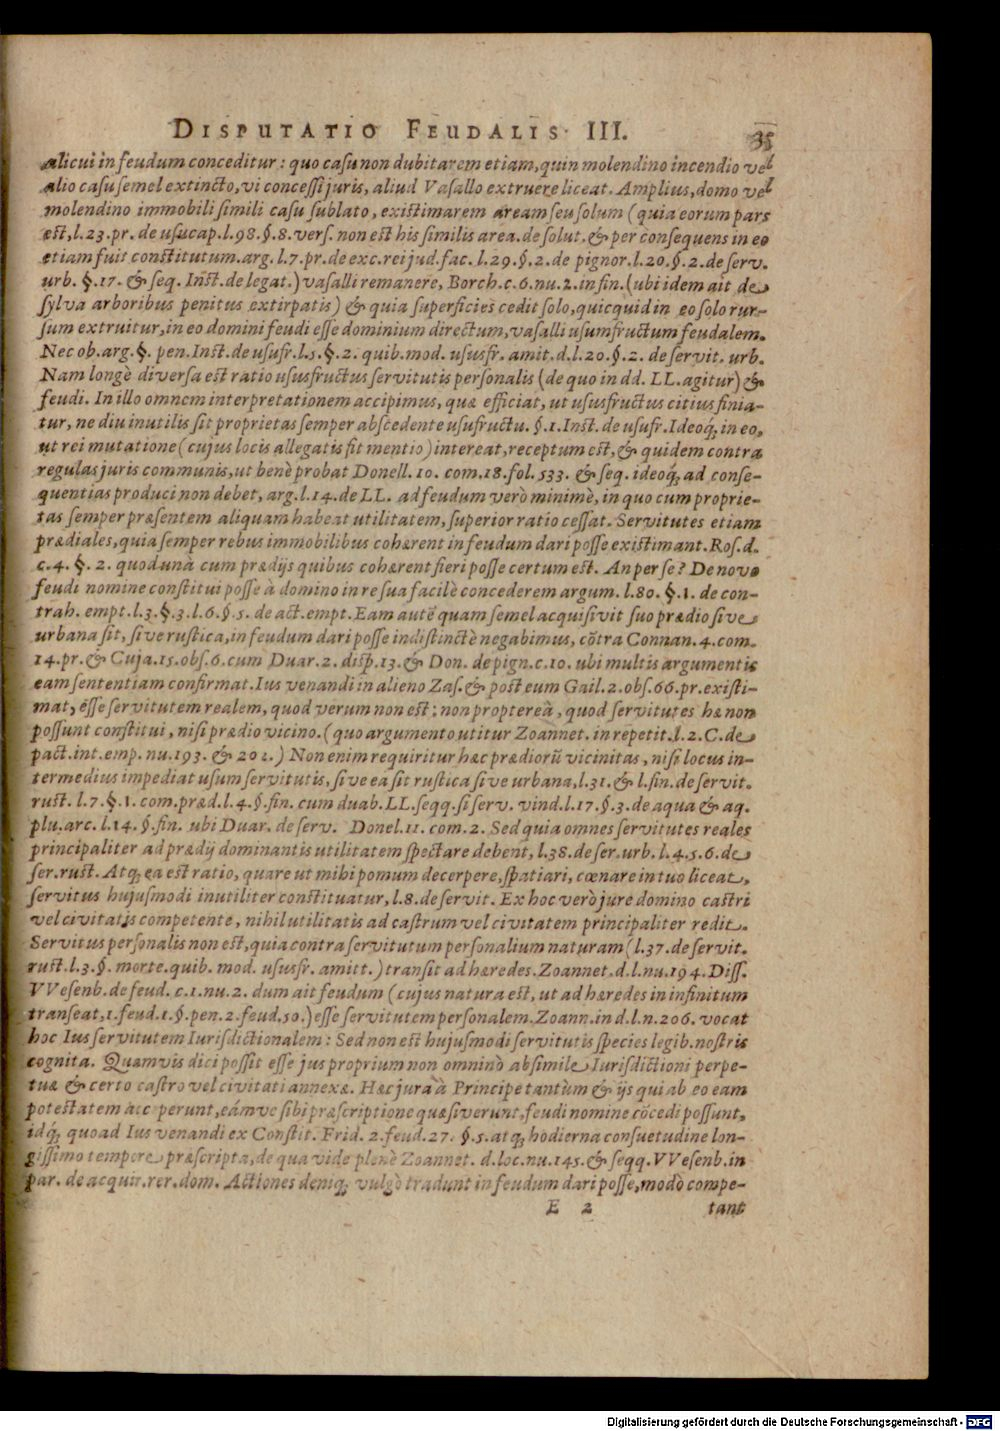 DISPUTATIO FEUDALIS III. 35
alicui in feudum conceditur: quo casu non dubitarem etiam, quin molendino incendio vel
alio casu semel extincto, vi concessi juris, aliud Vasallo extruere liceat. Amplius, domo vel
molendino immobili simili casu sublato, existimarem aream seu solum (quia eorum pars
est, l.23.pr. de usucap. l.98.§.8. vers. non est his similis area. de solut. & per consequens in eo
etiam fuit constitutum. arg. l.7. pr. de exc. rei jud. fac. l.29. §.2. de pignor. l.20. §.2. de serv.
urb. §.17. & seq. Inst. de legat.) vasalli remanere, Borch. c.6. nu.2. in fin. (ubi idem ait de
sylva arboribus penitus extirpatis) & quia superficies cedit solo, quicquid in eo solo rur-
sum extruitur, in eo domini feudi esse dominium directum, vasalli usumfructum feudalem.
Nec ob. arg. §. pen. Inst. de usufr. l.5. §.2. quib. mod. ususfr. amit. d.l.20. §.2. de servit. urb.
Nam longè diversa est ratio ususfructus servitutis personalis (de quo in dd. LL. agitur) &
feudi. In illo omnem interpretationem accipimus, quæ efficiat, ut ususfructus citius finia-
tur, ne diu inutilis sit proprietas semper abscedente usufructu. §.1. Inst. de usufr. Ideoq; in eo,
ut rei mutatione (cujus locis allegatis fit mentio) intereat, receptum est, & quidem contra
regulas juris communis, ut benè probat Donell. 10. com. 18. fol. 533. & seq. ideoq; ad conse-
quentias produci non debet, arg. l.14. de LL. ad feudum verò minimè, in quo cum proprie-
tas semper præsentem aliquam habeat utilitatem, superior ratio cessat. Servitutes etiam
prædiales, quia semper rebus immobilibus cohærent in feudum dari posse existimant. Ros. d.
c.4. §.2. quod unà cum prædijs quibus cohærent fieri posse certum est. An per se? De novo
feudi nomine constitui posse à domino in re sua facilè concederem argum. l.80. §.1. de con-
trah. empt. l.3. §.3. l.6. §.5. de act. empt. Eam autẽ quam semel acquisivit suo prædio sive
urbana sit, sive rustica, in feudum dari posse indistinctè negabimus, cõtra Connan. 4. com.
14. pr. & Cuja. 15. obs. 6. cum Duar. 2. disp. 13. & Don. de pign. c.10. ubi multis argumentis
eam sententiam confirmat. Ius venandi in alieno Zas. & post eum Gail. 2. obs. 66. pr. existi-
mat, esse servitutem realem, quod verum non est: non propterea, quod servitutes hæ non
possunt constitui, nisi prædio vicino. (quo argumento utitur Zoannet. in repetit. l.2. C. de
pact. int. emp. nu. 193. & 201.) Non enim requiritur hæc prædiorũ vicinitas, nisi locus in-
termedius impediat usum servitutis, sive ea sit rustica sive urbana, l.31. & l. fin. de servit.
rust. l.7. §.1. com. præd. l.4. §. fin. cum duab. LL. seqq. si serv. vind. l.17. §.3. de aqua & aq.
plu. arc. l.14. §. fin. ubi Duar. de serv. Donel. 11. com. 2. Sed quia omnes servitutes reales
principaliter ad prædij dominantis utilitatem spectare debent, l.38. de ser. urb. l.4.5.6. de
ser. rust. Atq; ea est ratio, quare ut mihi pomum decerpere, spatiari, cœnare in tuo liceat,
servitus hujusmodi inutiliter constituatur, l.8. de servit. Ex hoc verò jure domino castri
vel civitatis competente, nihil utilitatis ad castrum vel civitatem principaliter redit.
Servitus personalis non est, quia contra servitutum personalium naturam (l.37. de servit.
rust. l.3. §. morte. quib. mod. ususfr. amitt.) transit ad hæredes. Zoannet. d. l. nu. 194. Diss.
VVesenb. de feud. c.1. nu.2. dum ait feudum (cujus natura est, ut ad hæredes in infinitum
transeat, 1. feud. 1. §. pen. 2. feud. 50.) esse servitutem personalem. Zoann. in d. l. n. 206. vocat
hoc Ius servitutem Iurisdictionalem: Sed non est hujusmodi servitutis species legib. nostris
cognita. Quamvis dici possit esse jus proprium non omninò absimile Iurisdictioni perpe-
tuæ & certo castro vel civitati annexæ. Hæc jura à Principe tantùm & ijs qui ab eo eam
potestatem acceperunt, eámve sibi præscriptione quæsiverunt, feudi nomine cõcedi possunt,
idq; quoad Ius venandi ex Constit. Frid. 2. feud. 27. §.5. atq; hodierna consuetudine lon-
gissimo tempore præscripta, de qua vide plenè Zoannet. d. loc. nu. 145. & seqq. VVesenb. in
par. de acquir. rer. dom. Actiones deniq; vulgò tradunt in feudum dari posse, modò compe-
E 2 tant
Digitalisierung gefördert durch die Deutsche Forschungsgemeinschaft - DFG